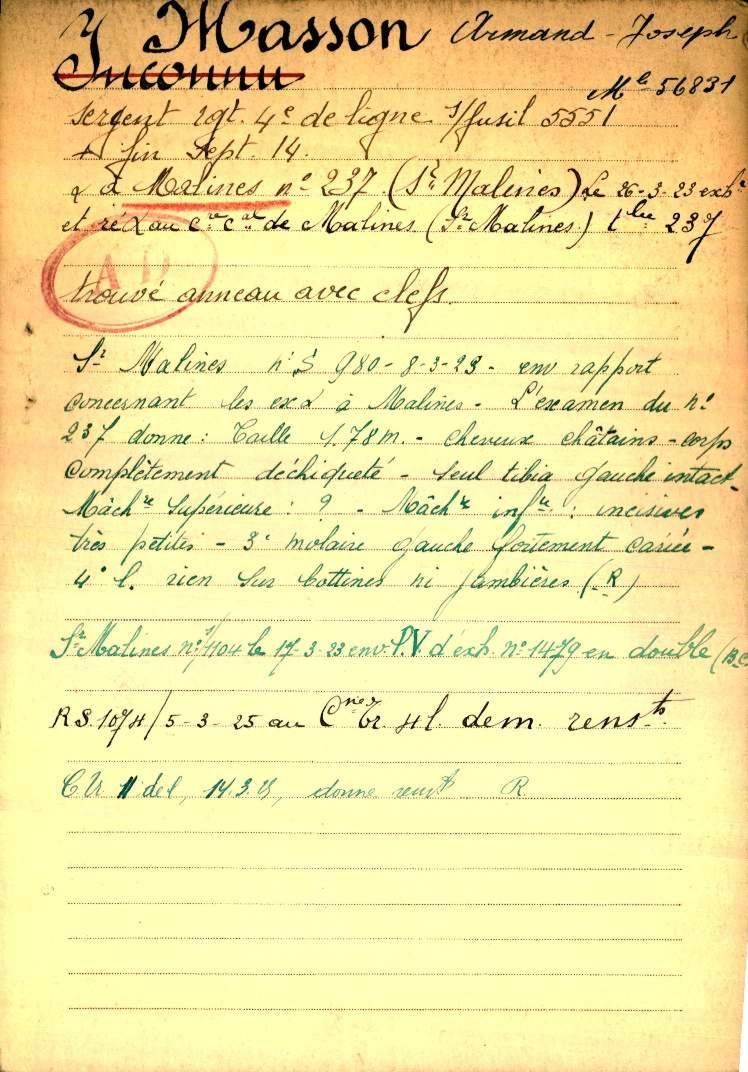 Masson Armand-Joseph
Inconnu
Mle 56831
Sergent rgt. 4e de ligne s/fusil 5551
+ fin Sept. 14.
à Malines n° 237 (Sr Malines) Le 26-3-23 exh
et ré au de Malines (Sr Malines) tbe 237
AD
trouvé anneau avec clefs.
Sr Malines n° S 980-8-3-23- env rapport
concernant les ex à Malines - L'examen du n°
237 donne: Taille 1.78 m. - cheveux châtains - corps
complètement déchiqueté - seul tibia gauche intact.
Mâchre Supérieure: ? - Mâchre infre: incisives
très petites - 3e molaire gauche fortement cariée -
4° l. rien sur bottines ni jambières (R)
Sr Malines n° 1104 le 17-3-23 env. P.V d'exh. n° 1479 en double
R S. 1074/5-3-25 au Tr 4 l. dem. rensts.
14.3.25, donne renst R